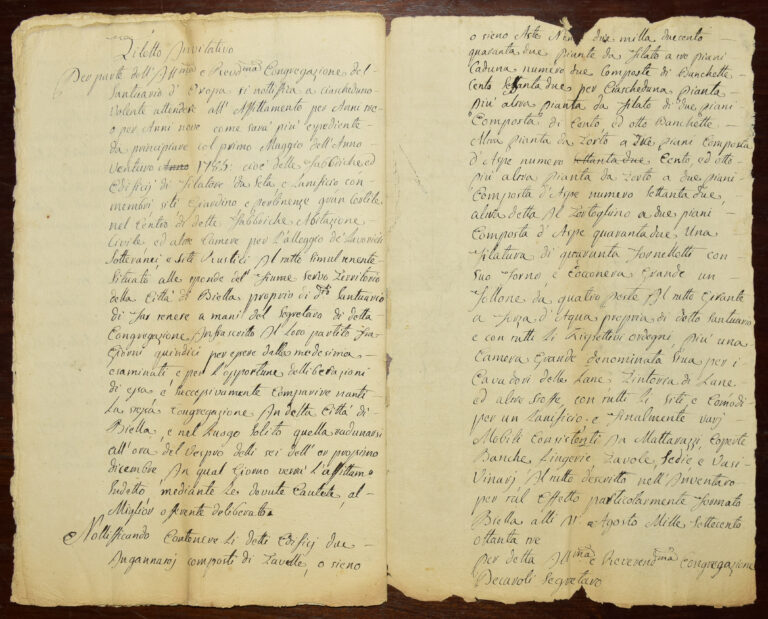 Editto Invitativo
Per parte dell' Ill.ma e Rever.ma Congregazione del
Santuario d' Oropa si nottifica a ciascheduno
volente attendere all' Affittamento per Anni
o per Anni novo come sarà più espediente
da principiare col primo Maggio dell' Anno
venturo Anno 1785: cioè delle Fabbriche ed
Edificj di Filatore da Seta e Lanificio con
membri siti Giardino e pertinenze gran Cortile
nel Centro di dette Fabbriche Abitazione
Civile ed altre Camere per l'alleggio de' Lavoranti
Sotteranei e Siti Rustici Il tutto simultenente
Situato alle sponde del Fiume Servo Territorio
della Città di Biella proprio di d.to Santuario
di far tenere a mani del Segretaro di detta
Congregazione Infrascritto Il loro partito fra
Giorni quindici per essere dalla medesima
esaminati e per l'opportune delliberazioni
di essa, e successivamente Comparire nanti
La stessa Congregazione In detta Città di
Biella, e nel Luogo Solito quella radunarsi
all'ora del Vespro delli sei dell' or prossimo
dicembre In qual Giorno verrà l'affittam.o
Sudetto mediante le dovute Cautele, al
Miglior offerente deliberato
Nottifficando Contenere Li detti Edificj due
Ingannatj composti di Tavelle, o sieno
o sieno Aste Nº due milla duecento
quaranta due Piante da Filato a tre piani
Caduna numero due Composte di Banchette
Cento settanta due per Ciascheduna pianta
Più altra pianta da Filato di due piani
Composta di Cento ed otto Banchette
Altra pianta da Torto a Tre piani Composta
d' Aspe numero ottanta due Cento, ed otto
più altra pianta da Torto a due piani
Composta d' Aspe numero Settanta due,
altra detta Il Tortoglino a due piani
Composta d' Aspe quaranta due Una
Filatura di quaranta Fornelletti con
Suo Forno, e Coconera Grande un
Follone da quattro peste Il tutto Girante
a forza d' Aqua propria di detto Santuario
e con tutti li Rispettivi ordegni, più una
Camera Grande denominata Stua per i
Cavadori delle Lane, Tintoria di Lane,
ed altre Stoffe con tutti li Siti e Comodi
per un Lanificio e finalmente varj
Mobili Consistenti In Mattarazzi, Coperte
Banche Lingerie Tavole, Sedie e Vasi
Vinarj Il tutto descritto nell' Inventaro
per tal Effetto particolarmente formato
Biella alli Agosto Mille Settecento
ottanta tre
per detta Ill.ma e Reverend.ma Congregazione
Decaroli Segretaro